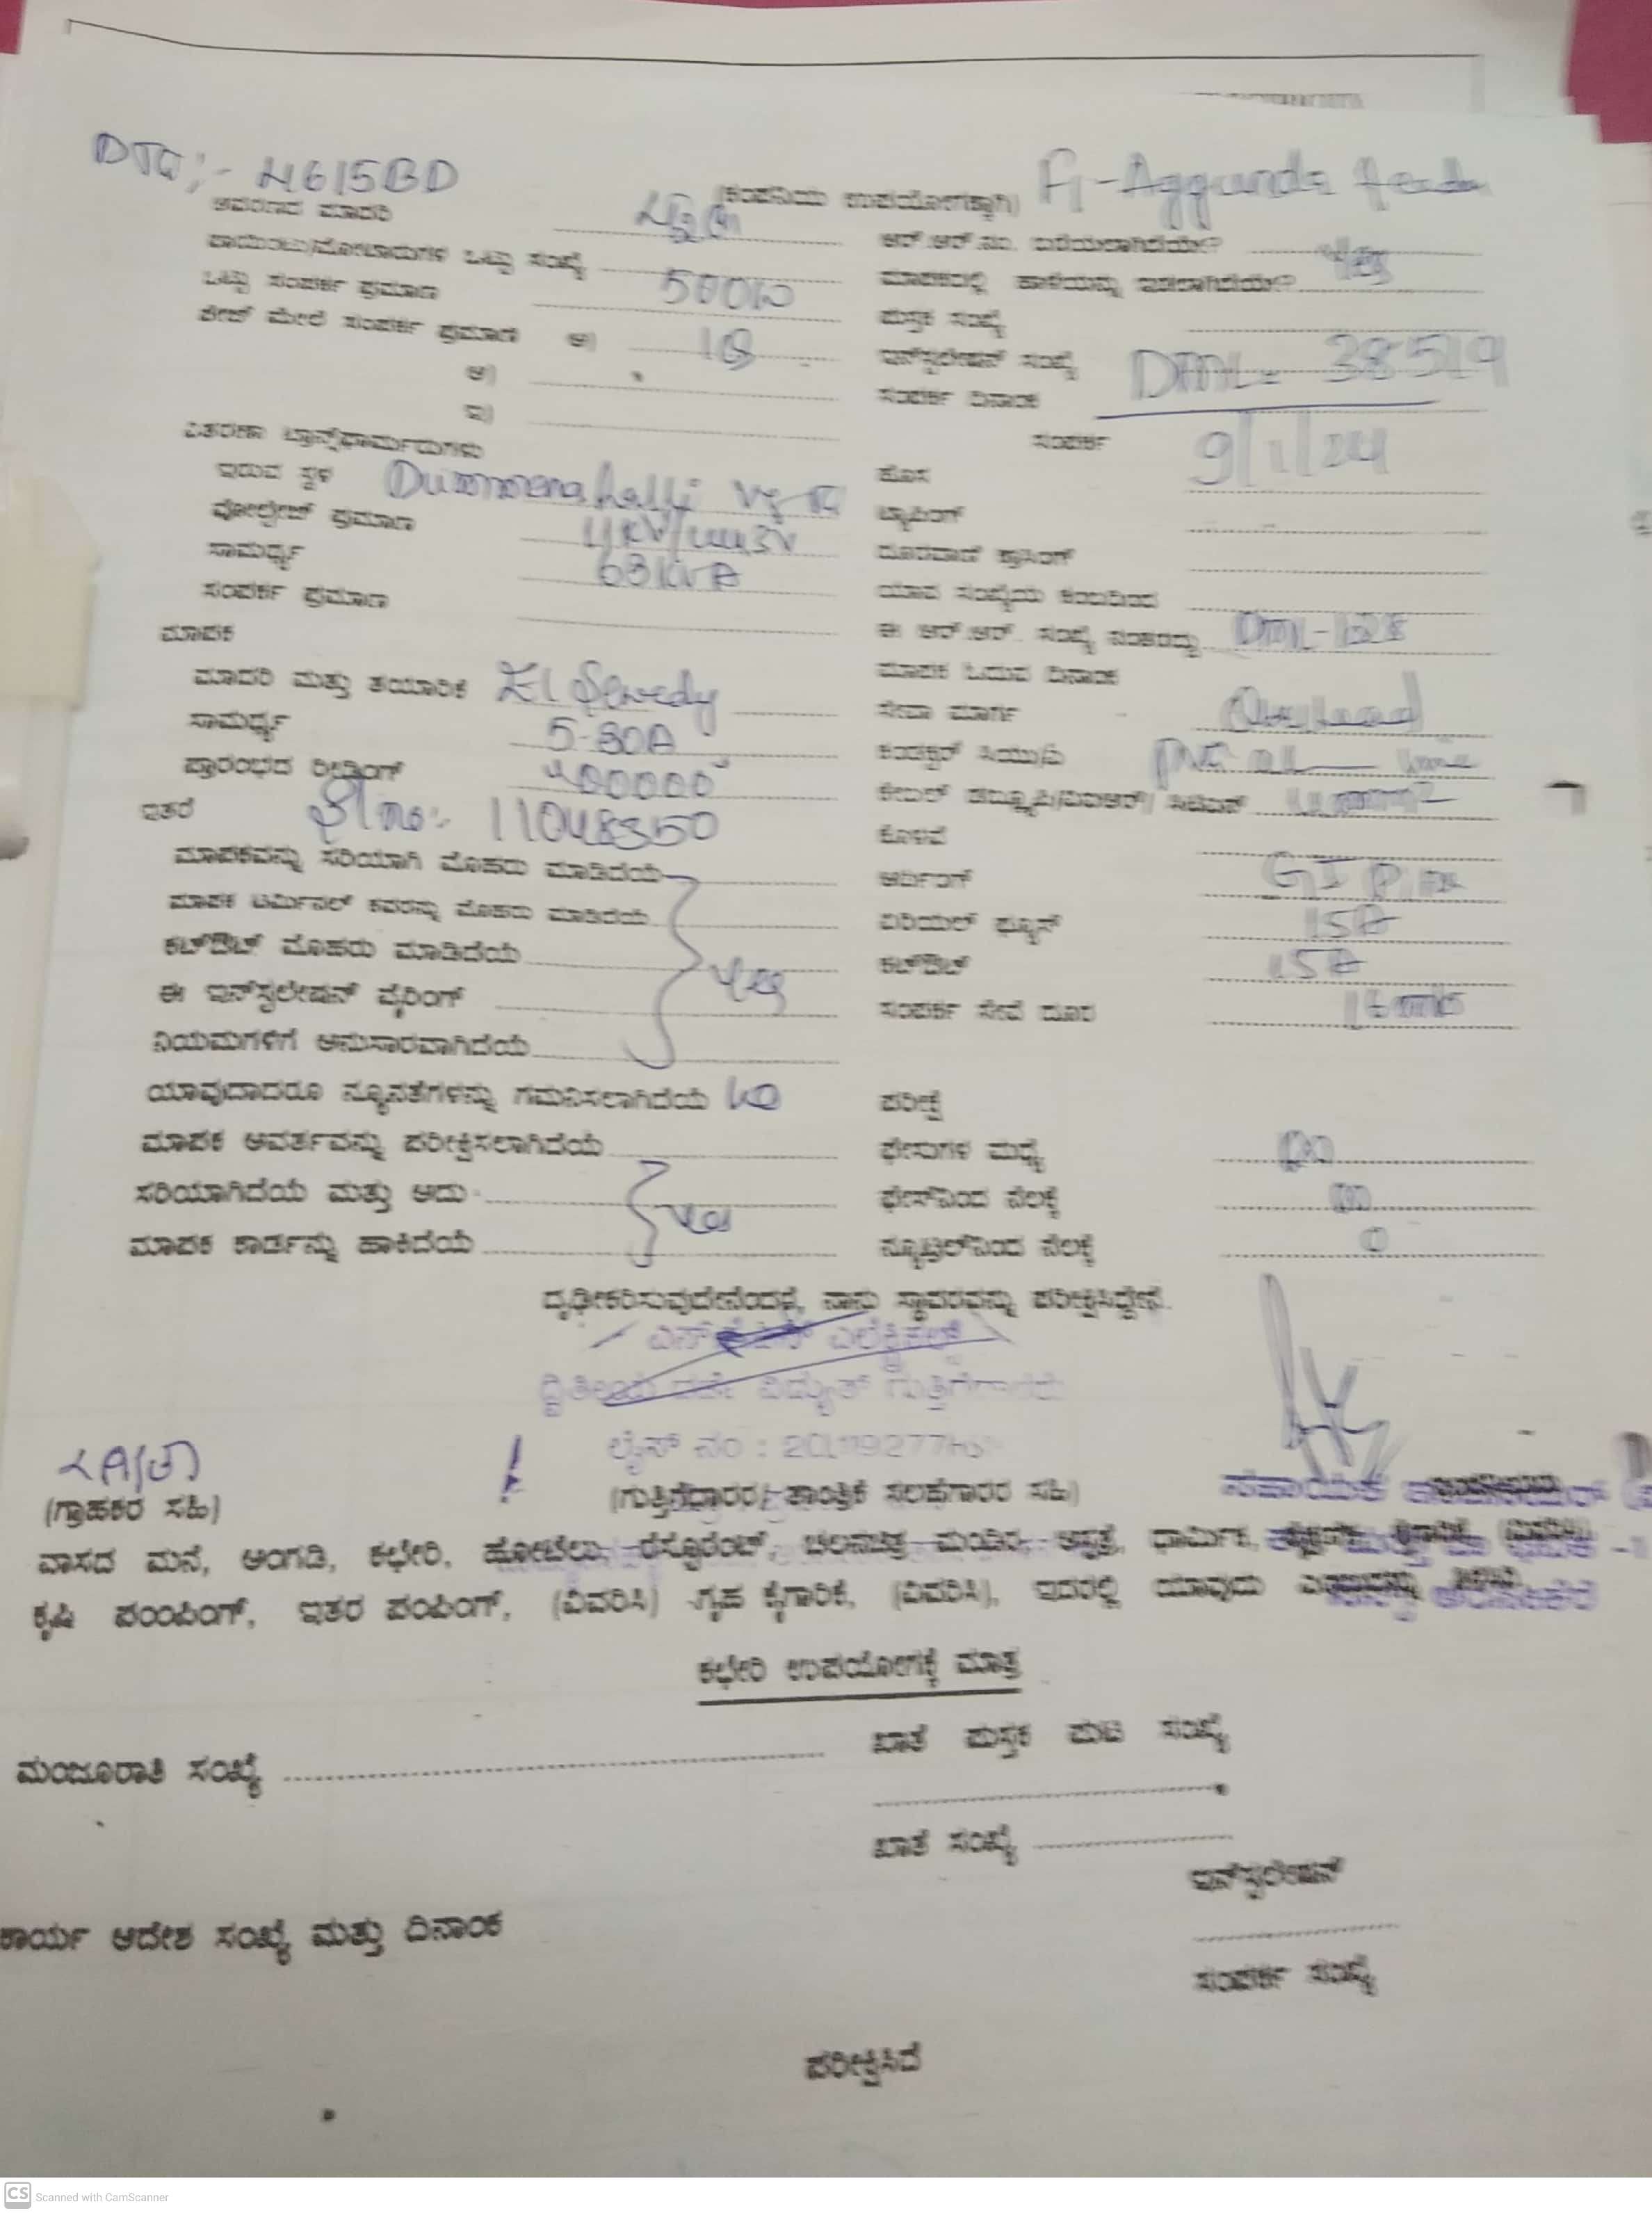 DTC:- 4615BD
(ಕಂಪನಿಯ ಉಪಯೋಗಕ್ಕಾಗಿ) F1-Aggunda
ಆವರಣದ ಮಾದರಿ
ಆರ್.ಆರ್.ನಂ. ಬರೆಯಲಾಗಿದೆಯೇ?
ಪಾಯಿಂಟು/ಮೋಟಾರುಗಳ ಒಟ್ಟು ಸಂಖ್ಯೆ
ಮಾಪಕದಲ್ಲಿ ಹಾಳೆಯನ್ನು ಇಡಲಾಗಿದೆಯೇ? Yes
ಒಟ್ಟು ಸಂಪರ್ಕ ಪ್ರಮಾಣ 500W
ಪುಸ್ತಕ ಸಂಖ್ಯೆ
ಫೇಜ್ ಮೇಲೆ ಸಂಪರ್ಕ ಪ್ರಮಾಣ ಅ)
ಇನ್‌ಸ್ಟಲೇಷನ್ ಸಂಖ್ಯೆ DML- 38519
ಆ)
ಸಂಪರ್ಕ ದಿನಾಂಕ
ಇ)
ಸಂಪರ್ಕ 9/1/24
ವಿತರಣಾ ಟ್ರಾನ್ಸ್‌ಫಾರ್ಮರುಗಳು
ಇರುವ ಸ್ಥಳ Dummenahalli
ಹೊಸ
ವೋಲ್ಟೇಜ್ ಪ್ರಮಾಣ
ಟ್ಯಾಪಿಂಗ್
ಸಾಮರ್ಥ್ಯ 63KVA
ದೂರವಾಣಿ ಕ್ರಾಸಿಂಗ್
ಸಂಪರ್ಕ ಪ್ರಮಾಣ
ಯಾವ ಸಂಖ್ಯೆಯ ಕಂಬದಿಂದ
ಮಾಪಕ
ಈ ಆರ್.ಆರ್. ಸಂಖ್ಯೆ ನಂತರದ್ದು DML-128
ಮಾದರಿ ಮತ್ತು ತಯಾರಿಕೆ El Sewedy
ಮಾಪಕ ಓದುವ ದಿನಾಂಕ
ಸಾಮರ್ಥ್ಯ 5-30A
ಸೇವಾ ಮಾರ್ಗ Overhead
ಪ್ರಾರಂಭದ ರೀಡಿಂಗ್
ಕಂಡಕ್ಟರ್ ಸಿಯು/ಎ
ಇತರೆ Sl no:- 11048350
ಕೇಬಲ್
ಕೊಳವೆ
ಮಾಪಕವನ್ನು ಸರಿಯಾಗಿ ಮೊಹರು ಮಾಡಿದೆಯೆ
ಅರ್ಥಿಂಗ್ GI
ಮಾಪಕ ಟರ್ಮಿನಲ್ ಕವರನ್ನು ಮೊಹರು ಮಾಡಿದೆಯೆ
ಏರಿಯಲ್ ಫ್ಯೂಸ್ 15A
ಕಟ್‌ಔಟ್ ಮೊಹರು ಮಾಡಿದೆಯೆ
ಕಟ್‌ಔಟ್ 15A
ಈ ಇನ್‌ಸ್ಟಲೇಷನ್ ವೈರಿಂಗ್ Yes
ಸಂಪರ್ಕ ಸೇವೆ ದೂರ
ನಿಯಮಗಳಿಗೆ ಅನುಸಾರವಾಗಿದೆಯೆ
ಯಾವುದಾದರೂ ನ್ಯೂನತೆಗಳನ್ನು ಗಮನಿಸಲಾಗಿದೆಯೆ NO
ಪರೀಕ್ಷೆ
ಮಾಪಕ ಆವರ್ತವನ್ನು ಪರೀಕ್ಷಿಸಲಾಗಿದೆಯೆ
ಫೇಸುಗಳ ಮಧ್ಯೆ
ಸರಿಯಾಗಿದೆಯೆ ಮತ್ತು ಅದು Yes
ಫೇಸ್‌ನಿಂದ ನೆಲಕ್ಕೆ
ಮಾಪಕ ಕಾರ್ಡನ್ನು ಹಾಕಿದೆಯೆ
ನ್ಯೂಟ್ರಲ್‌ನಿಂದ ನೆಲಕ್ಕೆ 0
ದೃಢೀಕರಿಸುವುದೇನೆಂದರೆ, ನಾನು ಸ್ಥಾವರವನ್ನು ಪರೀಕ್ಷಿಸಿದ್ದೇನೆ.
ಎಲೆಕ್ಟ್ರಿಕಲ್ಸ್
ದ್ವಿತೀಯ ದರ್ಜೆ ವಿದ್ಯುತ್ ಗುತ್ತಿಗೆದಾರರು
ಲೈಸೆನ್ಸ್ ನಂ :
(ಗ್ರಾಹಕರ ಸಹಿ)
(ಗುತ್ತಿಗೆದಾರರ/ ತಾಂತ್ರಿಕ ಸಲಹೆಗಾರರ ಸಹಿ)
ಸಹಾಯಕ
ವಾಸದ ಮನೆ, ಅಂಗಡಿ, ಕಛೇರಿ, ಹೋಟೆಲು, ರೆಸ್ಟೊರೆಂಟ್, ಚಲನಚಿತ್ರ ಮಂದಿರ, ಆಸ್ಪತ್ರೆ, ಧಾರ್ಮಿಕ,
ಕೃಷಿ ಪಂಂಪಿಂಗ್, ಇತರ ಪಂಪಿಂಗ್, (ವಿವರಿಸಿ) ಗೃಹ ಕೈಗಾರಿಕೆ, (ವಿವರಿಸಿ), ಇದರಲ್ಲಿ ಯಾವುದು
ಕಛೇರಿ ಉಪಯೋಗಕ್ಕೆ ಮಾತ್ರ
ಖಾತೆ ಪುಸ್ತಕ ಪುಟ ಸಂಖ್ಯೆ
ಮಂಜೂರಾತಿ ಸಂಖ್ಯೆ
ಖಾತೆ ಸಂಖ್ಯೆ
ಇನ್‌ಸ್ಟಲೇಷನ್
ಕಾರ್ಯ ಆದೇಶ ಸಂಖ್ಯೆ ಮತ್ತು ದಿನಾಂಕ
ಸಂಪರ್ಕ ಸಂಖ್ಯೆ
ಪರೀಕ್ಷಿಸಿದೆ
CS Scanned with CamScanner